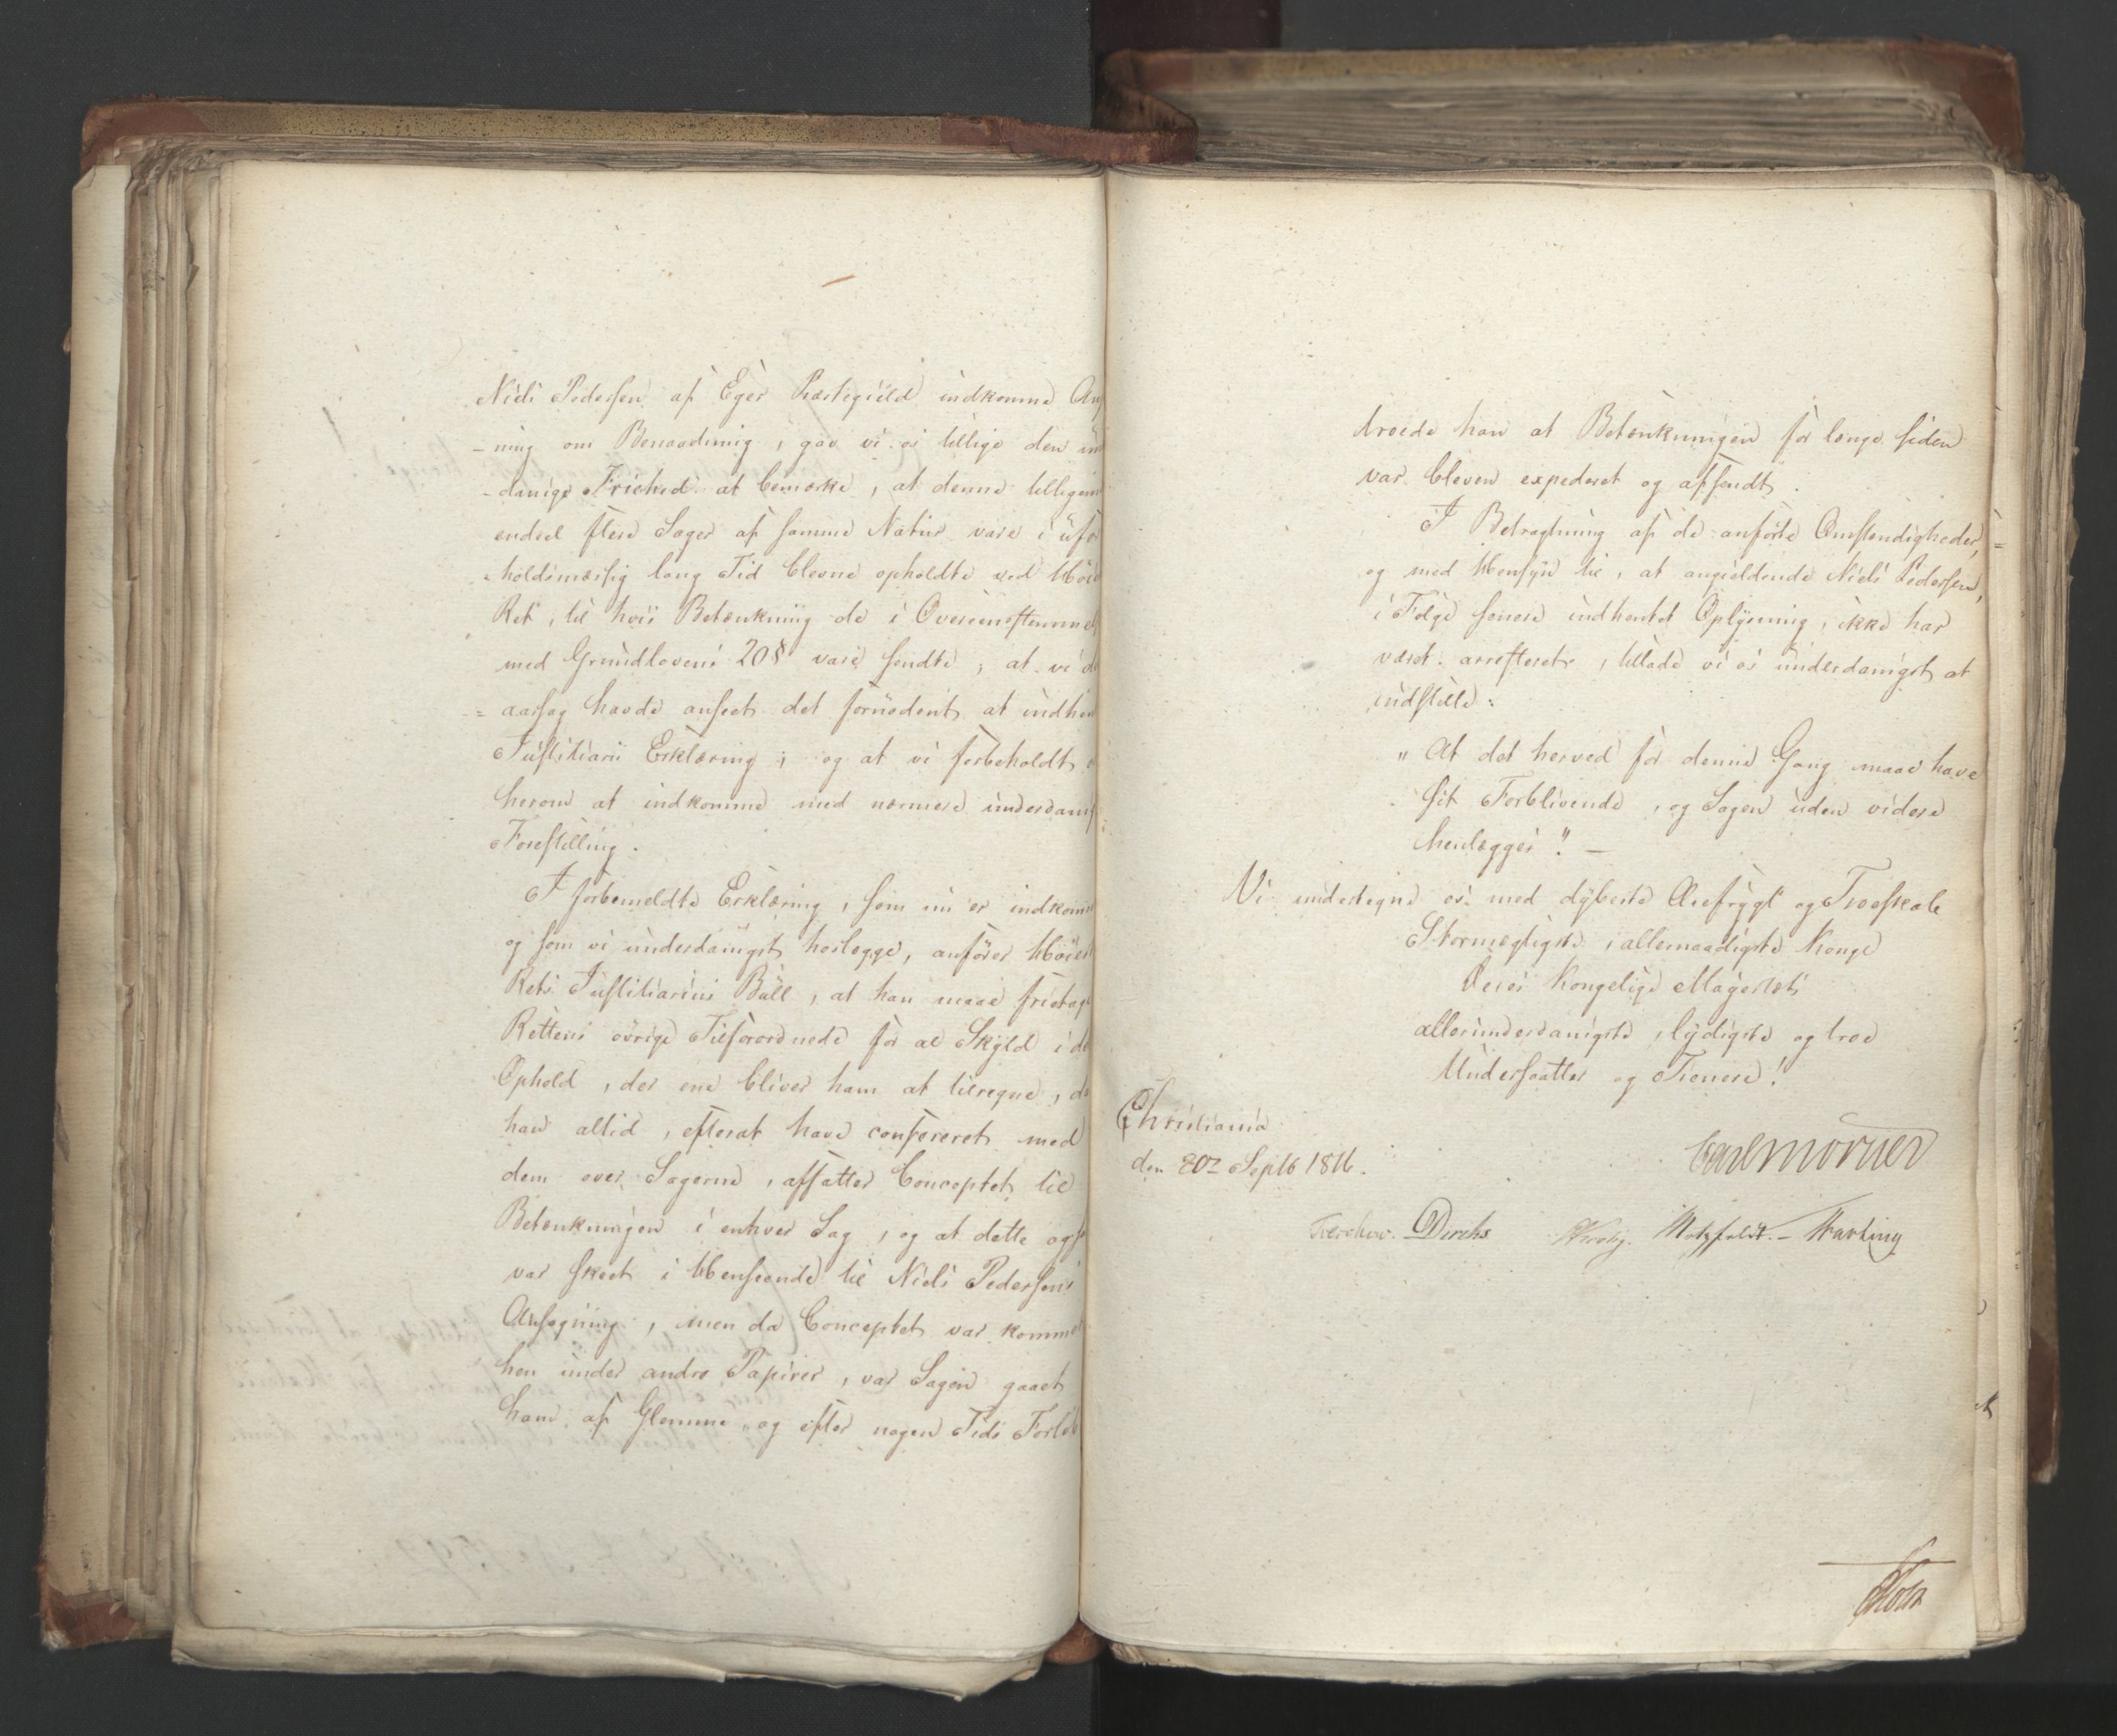 Niels Pedersen af Eger Præstegield indkomne An
-ning om Benaadning, gav vi os tillige den un
-danige Friehed at bemærke, at denne tilligem
endeel flere Sager af samme Natur vare i ufor
-holdsmæssig lang Tid blevne opholdte ved Höie
Ret, til hvis Betænkning de i Overeensstemmel
med Grundlovens 20§ vare sendte; at vi d
= aarsag havde anseet det fornødent at indhen
Justitiarii Erklæring; og at vi forbeholdt
herom at indkomme med nærmere underdani
Forestilling.
I forbemeldte Erklæring, som nu er indkomm
og som vi underdanigst hoslegge, anförer Höieste
Rets Justitiarius Bull, at han maae frietage
Rettens övrige Tilforordnede for al Skyld i de
Ophold, der ene bliver ham at tilregne, da
han altid, efterat have confereret med
dem over Sagerne, affatter Conceptet til
Betænkningen i enhver Sag, og at dette ogs
var skeet i Henseende til Niels Pedersens
Ansøgning, men da Conceptet var kommet
hen under andre Papirer, var Sagen gaaet
ham af Glemme, og efter nogen Tids Forlöb
troede han at Betænkningen for længe siden
var bleven expederet og afsendt.
I Betragtning af de anførte Omstændigheder,
og med Hensyn til, at angieldende Niels Pedersen,
i Følge senere indhentet Oplysning, ikke har
været arresteret, tillade vi os underdanigst at
indstille:
"At det herved for denne Gang maae have
sit Forblivende, og Sagen uden videre
henlægges". —
Vi undertegne os med dybeste Ærefrygt og Troeskab
Stormægtigste, allernaadigste Konge
Deres Kongelige Majestæts
allerunderdanigste, lydigste og troe
Undersaatter og Tienere!
Christiania
den 20de Septb 1816.
Carl Mörner
Treschow. Diriks Krohg. Motzfeldt. — Hartung
Holst